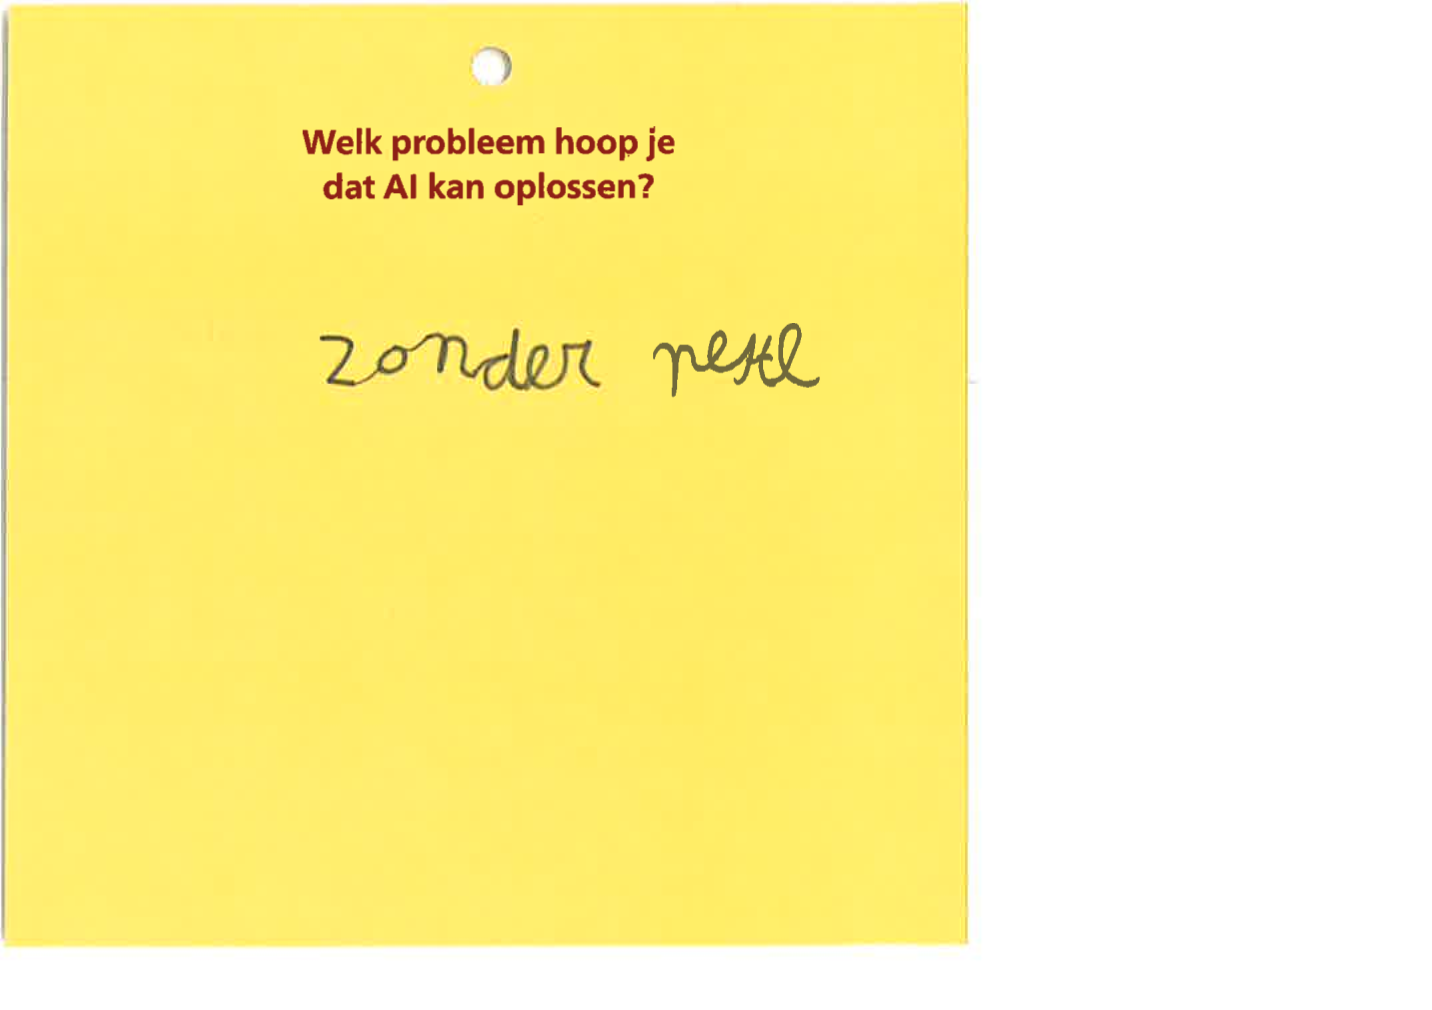 Welk probleem hoop je
dat AI kan oplossen?
zonder